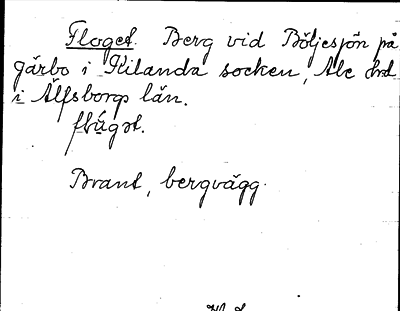 Floget. Berg vid Böljesjön på
gärbo i Kilanda socken, Ale hrd
i Älfsborgs län.
flúgət.
Brant, bergvägg.